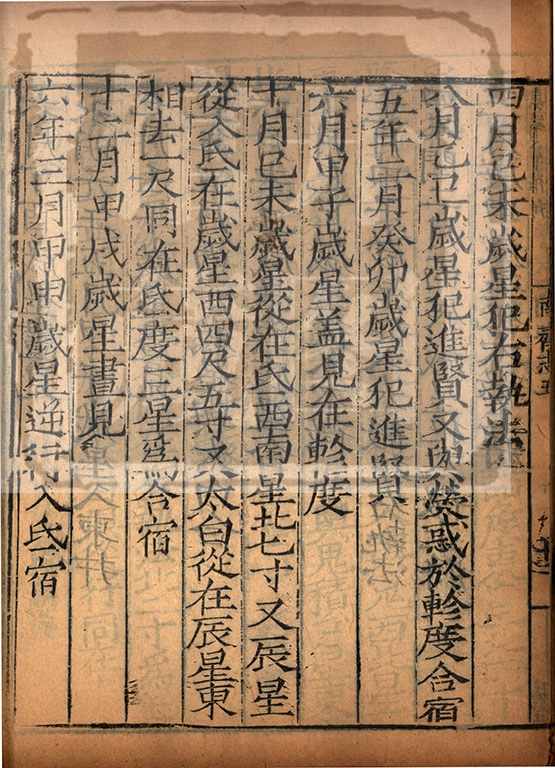 四月己未歲星犯右執法
八月乙巳歲星犯進賢又與熒惑於軫度合宿
五年二月癸卯歲星犯進賢
六月甲子歲星盖見在軫度
十月己未歲星從在氐西南星北七寸又辰星
從入氐在歲星西四尺五寸又太白從在辰星東
相去一尺同在氐度三星為合宿
十二月甲戌歲星晝見
六年三月甲申歲星逆行入氐宿
南齊志五